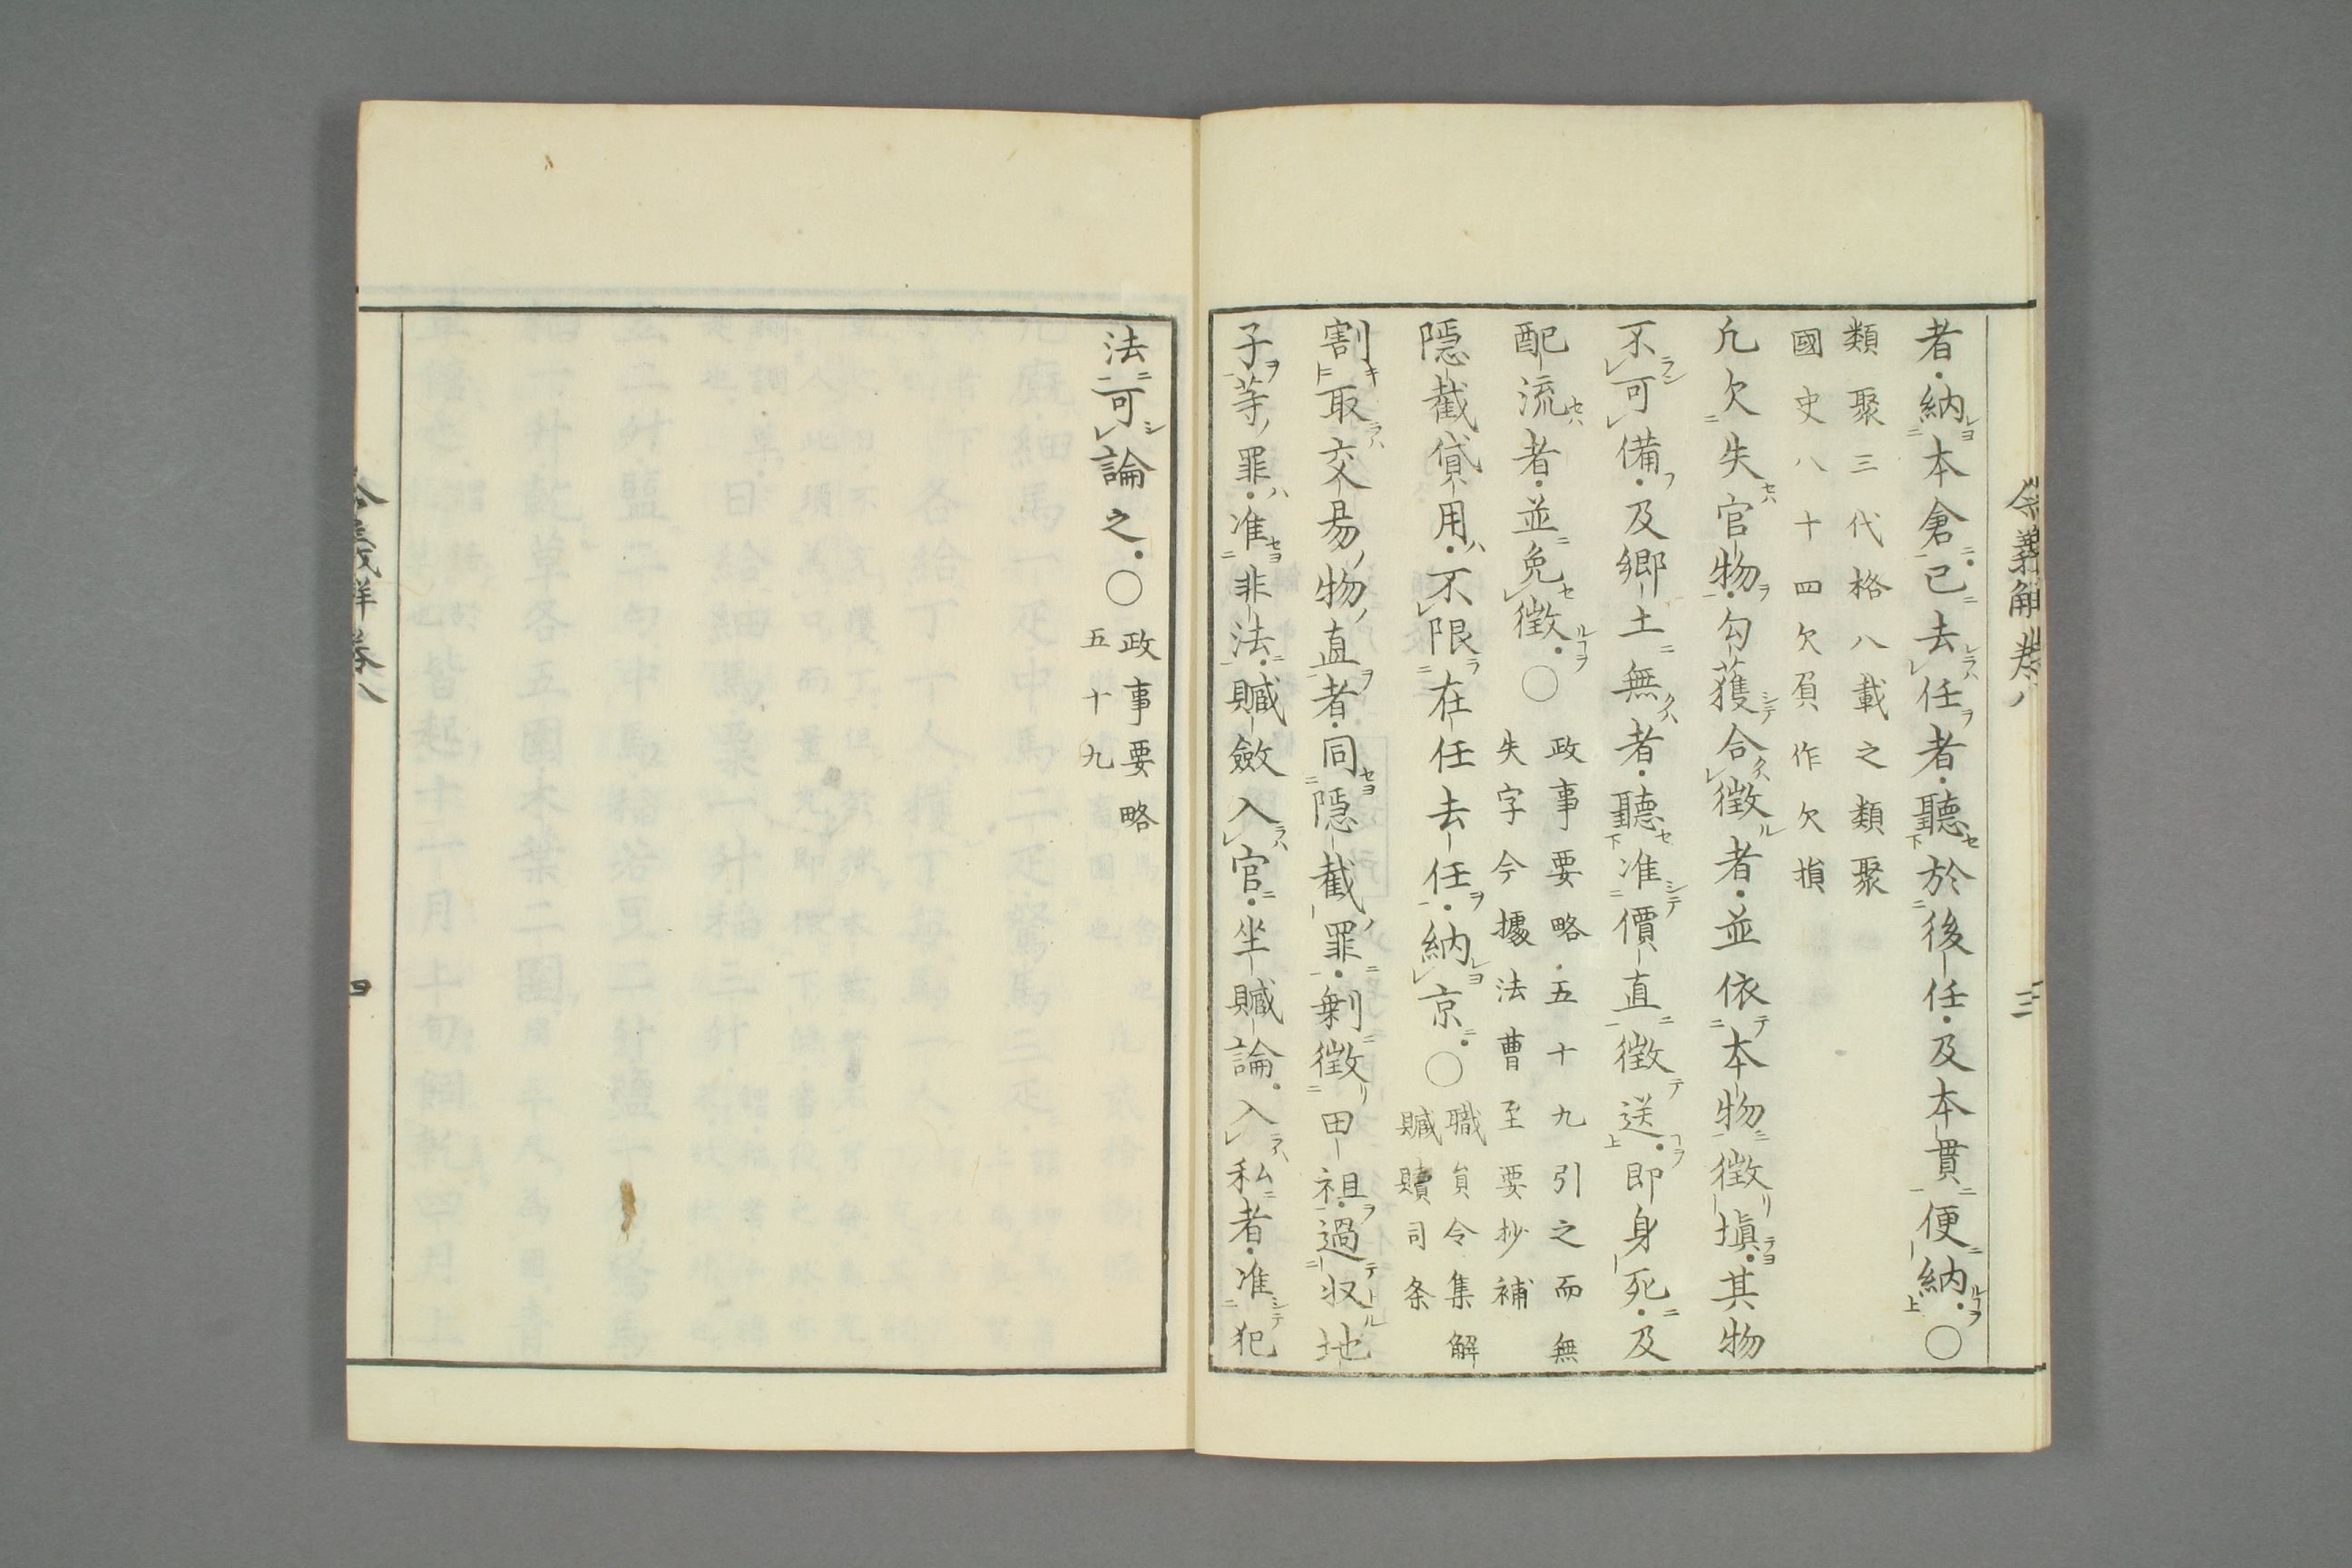 令義解卷八
三
者納本倉已去任者聽於後任及本貫便納○
類聚三代格八載之類聚
國史八十四欠負作欠損
凡欠失官物勾獲合徵者並依本物徵塡其物
不可備及鄉土無者聽准價直徵送即身死及
配流者並免徵○
政事要略五十九引之而無
失字今據法曹至要抄補
隱截貸用不限在任去任納京○
職員令集解
贓贖司条
割取交易物直者同隱截罪剩徵田租過収地
子等罪准非法贓斂入官坐贓論入私者准犯
法可論之○
政事要略
五十九
令義解卷八
四